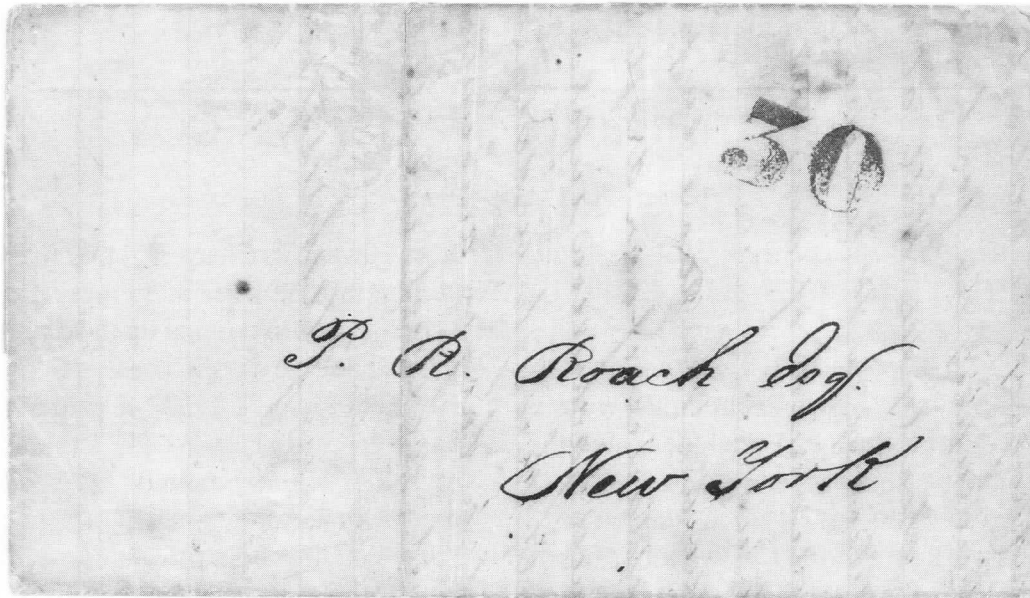 30
P. R. Roach Esq.
New York